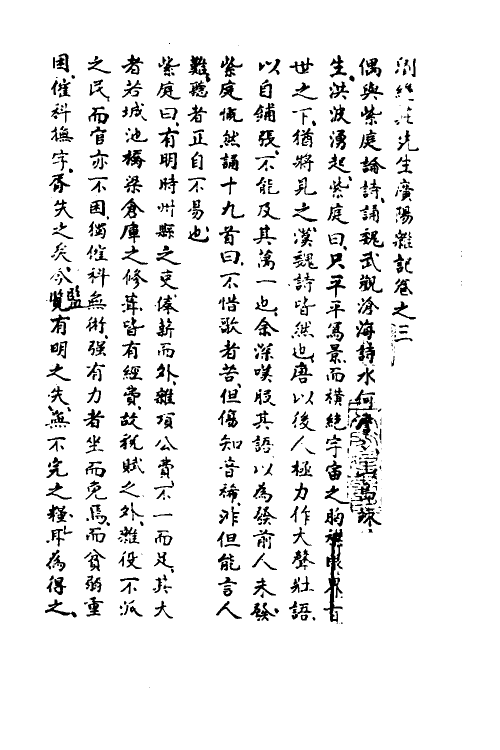 劉繼莊先生廣陽雜記卷之三
偶與紫庭論詩誦魏武觀滄海詩水何澹澹山島竦
生洪波湧起紫庭曰只平平寫景而橫絕宇宙之胸襟眼界百
世之下猶將見之漢魏詩皆然也唐以後人極力作大聲壯語
以自鋪張不能及其萬一也余深嘆服其語以為發前人未發
紫庭慨然誦十九首曰不惜歌者苦但傷知音稀非但能言人
難聽者正自不易也
紫庭曰有明時州縣之吏俸薪而外雜項公費不一而足其大
者若城池橋梁倉庫之修葺皆有經費故税賦之外雜役不派
之民而官亦不困獨催科無術强有力者坐而免焉而貧弱重
困催科撫字胥失之矣今覽有明之失無不完之糧耳為得之
鑒